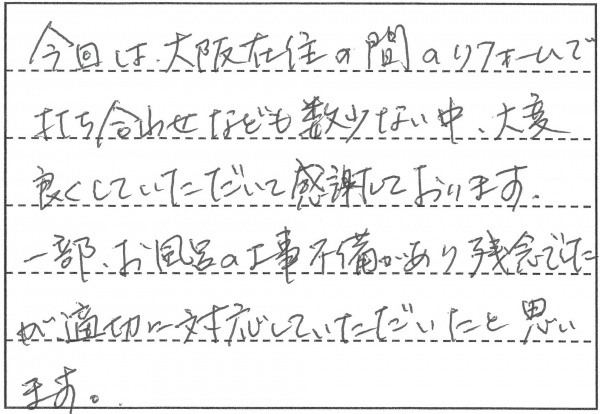 今回は、大阪在住の間のリフォームで
打ち合わせなども数少ない中、大変
良くしていただいて感謝しております。
一部、お風呂の工事不備があり残念でした
が適切に対応していただいたと思い
ます。